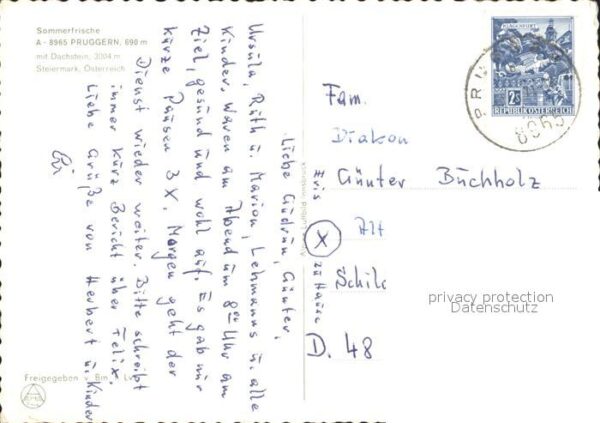 Sommerfrische
A - 8965 PRUGGERN, 690 m
mit Dachstein, 3004 m
Steiermark, Österreich
Liebe Gudrun, Günter,
Ursula, Ruth u. Marion, Lehmanns u. alle
Kinder. Waren am Abend um 8 Uhr am
Ziel, gesund und wohl auf. Es gab nur
kurze Pausen 3 X. Morgen geht der
Dienst wieder weiter. Bitte schreibt
immer kurz Bericht über Felix.
Liebe Grüße von Herbert u. Kinder
Freigegeben v. Bm. f. Lv.
Luftbild Innsbruck
zu Hause
KLAGENFURT
2S
REPUBLIK ÖSTERREICH
8965
Fam.
Diakon
Günter Buchholz
Alt
Schil
D. 48
privacy protection
Datenschutz